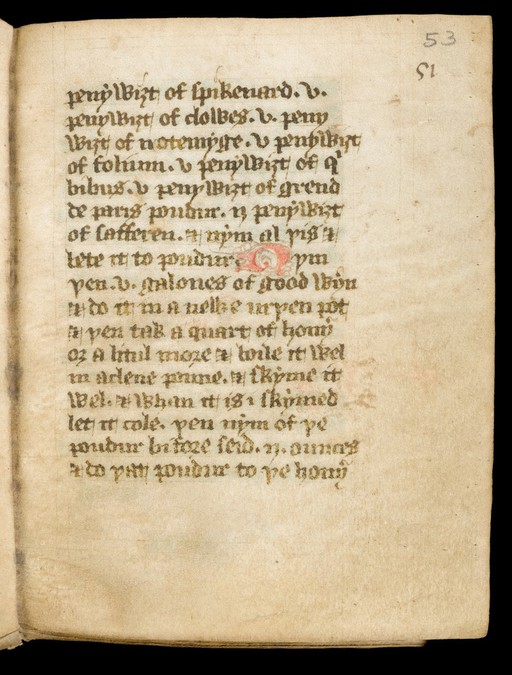 53
51
penywiȝt of spikenard. v.
penywiȝt of clowes. v. peny
wiȝt of notemyge. v penywiȝt
of folium. v penywiȝt of q
bibus. v penywiȝt of greyn
de paris poudur. ij penywiȝt
of safferen. & nym al yis &
lete it to poudur Nym
yen. v. galones of good wyn
& do it in a newe eryen pot
& yen tak a quart of hony
or a litul more & boile it wel
in a clene panne. & skyme it
wel. & whan it is i skymed
let it cole. yen nym of ye
poudur bifore seid. ij. ounces
& do yat poudur to ye hony